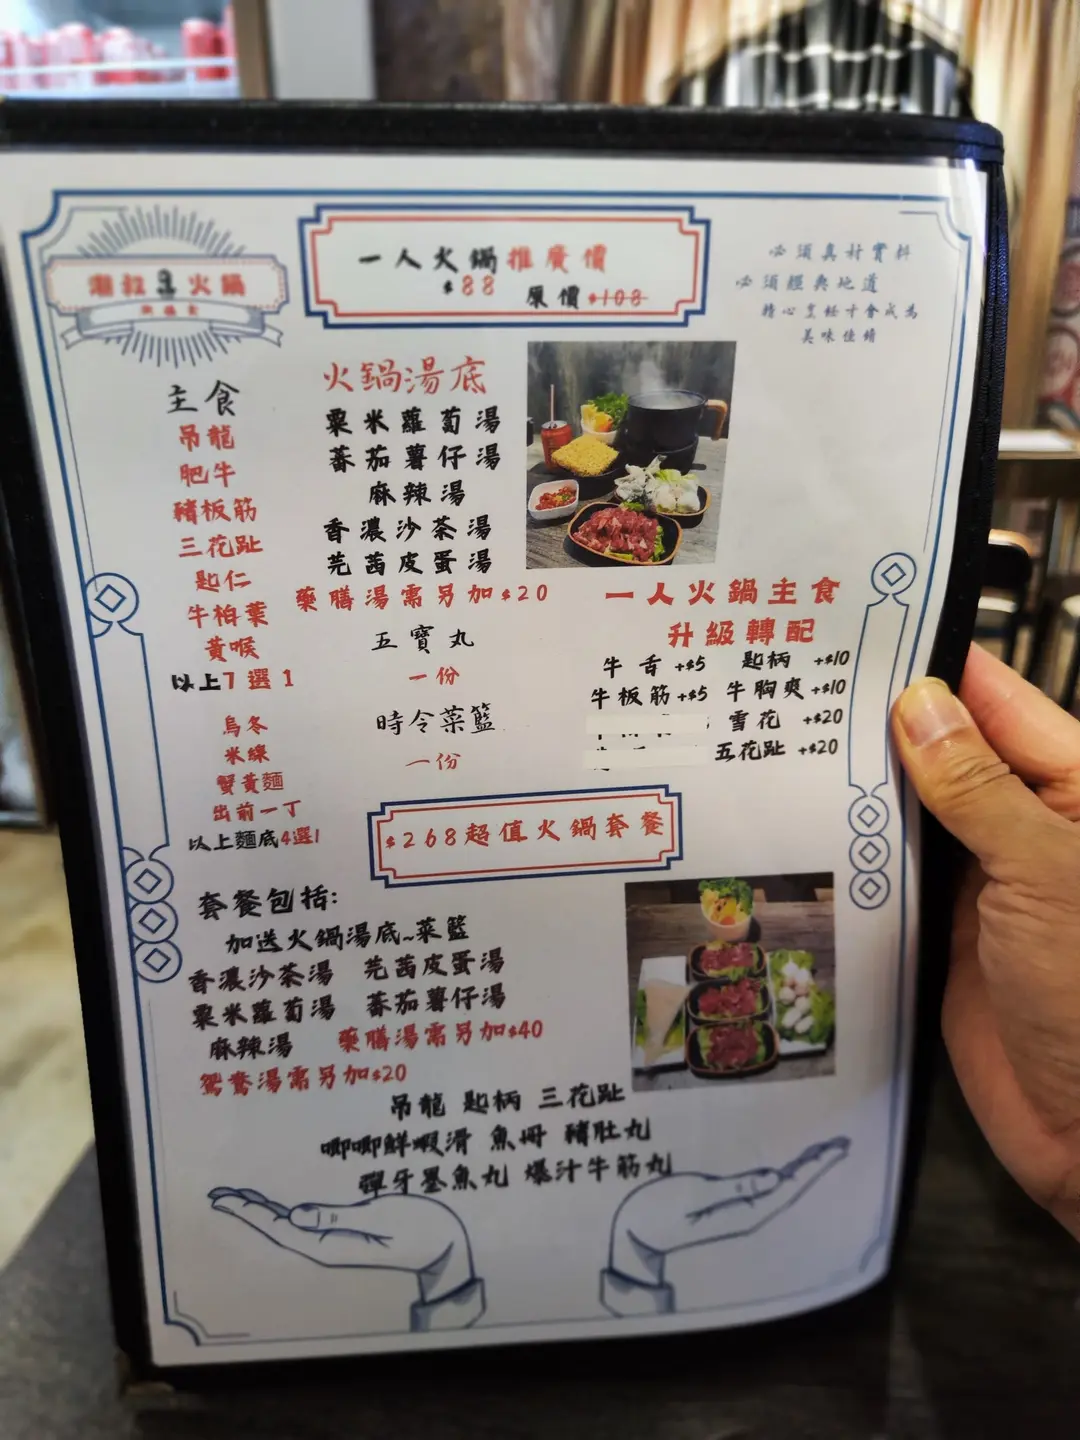 潮叔火鍋
一人火鍋推廣價
$88 原價$108
必須真材實料
必須經典地道
精心烹飪才會成為
美味佳餚
主食
吊龍
肥牛
豬板筋
三花趾
匙仁
牛柏葉
黃喉
以上7選1
烏冬
米線
蟹黃麵
出前一丁
以上麵底4選1
火鍋湯底
粟米蘿蔔湯
蕃茄薯仔湯
麻辣湯
香濃沙茶湯
芫茜皮蛋湯
藥膳湯需另加$20
五寶丸
一份
時令菜籃
一份
一人火鍋主食
升級轉配
牛舌 +$5 匙柄 +$10
牛板筋 +$5 牛胸爽 +$10
雪花 +$20
五花趾 +$20
$268超值火鍋套餐
套餐包括:
加送火鍋湯底~菜籃
香濃沙茶湯 芫茜皮蛋湯
粟米蘿蔔湯 蕃茄薯仔湯
麻辣湯 藥膳湯需另加$40
鴛鴦湯需另加$20
吊龍 匙柄 三花趾
唧唧鮮蝦滑 魚冊 豬肚丸
彈牙墨魚丸 爆汁牛筋丸